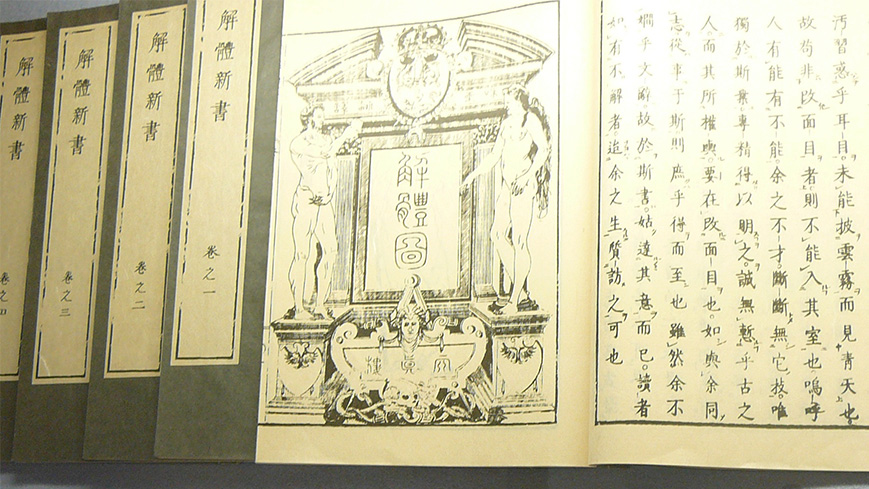 汚習惑乎耳目。未能披雲霧而見青天也。
故苟非改面目者。則不能入其室也嗚呼
人有能有不能。余之不才斷斷無它技。唯
獨於斯業專精得以明之。誠無慙乎古之
人。而其所權輿。要在改面目也。如與余同
志從事于斯則庶乎得而至也雖然余不
嫺乎文辭故於斯書。姑達其意而已。讀者
如有不解者追余之生質訪之可也
解體圖
天真樓
解體新書
卷之一
解體新書
卷之二
解體新書
卷之三
解體新書
卷之四